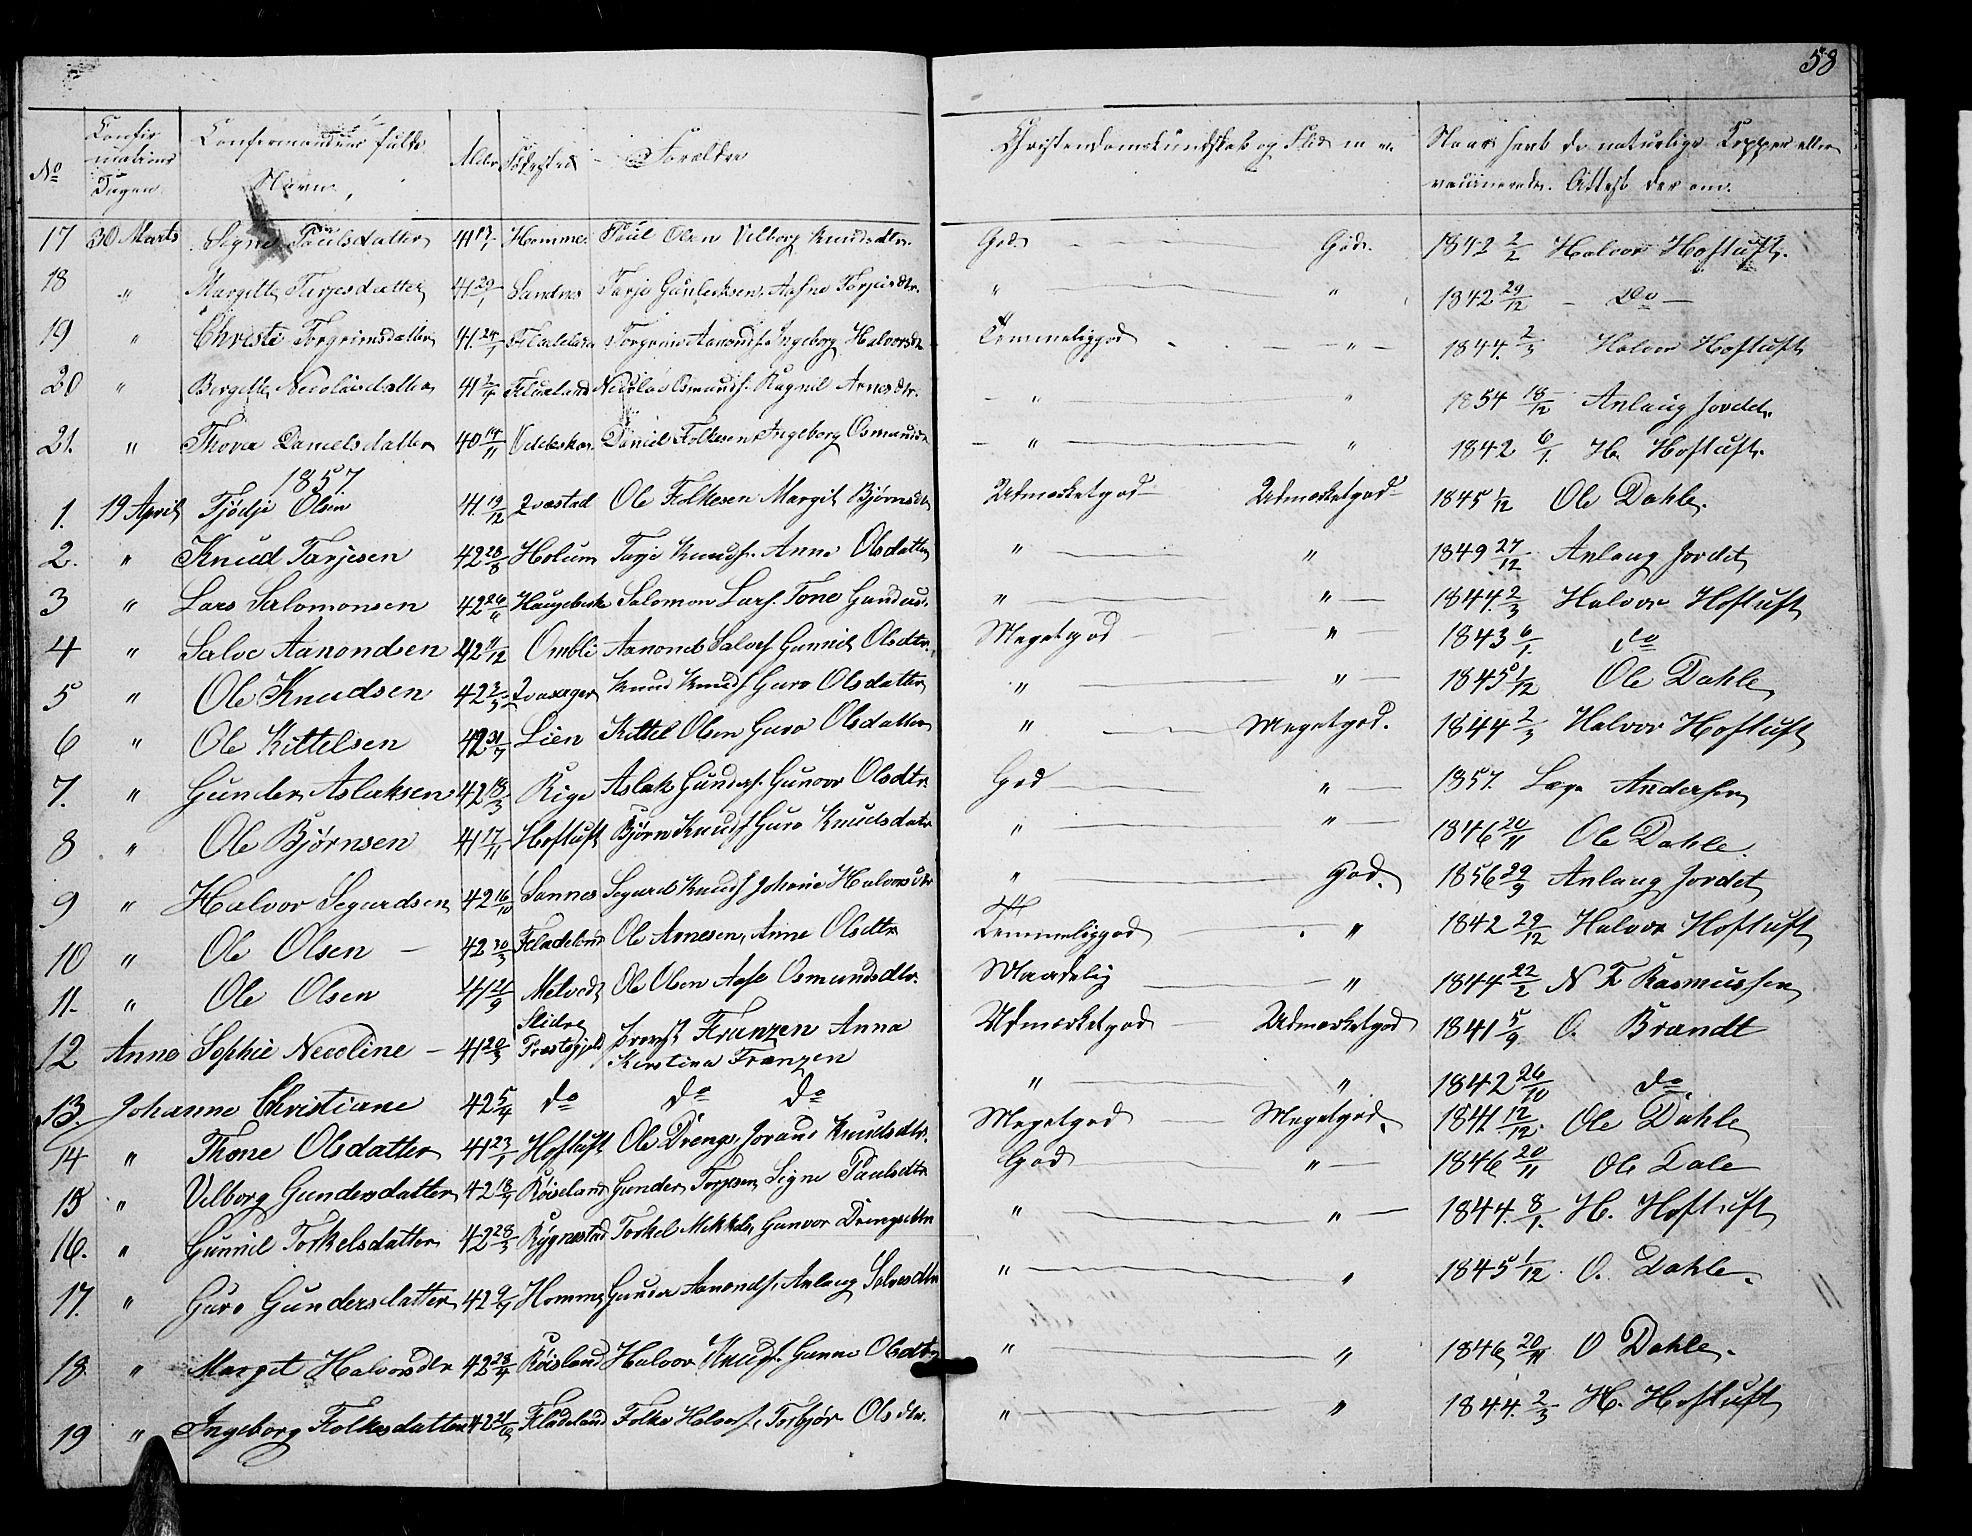 58
No Confirmations Dagen Confirmandens fulde Navn Alder Fødested Forældre Christendomskundskab og Flid m. v. Naar havt de naturlige Kopper eller vaccinerede. Attest der om.
17 30 Marts Signe Paulsdatter 41 Homme Paul Olsen Vilborg Knudsdtr. God God. 1842 2/2 Halvor Hoftuft.
18 " Margitte Terjesdatter 41 29/1 Sandnes Tarje Gunleksen, Aasne Torjusdtr. " " 1842 29/12 — Do —
19 " Christi Torgrimsdatter 41 24/1 Fladeland Torgrim Aanonds. Ingeborg Halvorsdtr Temmeliggod " 1844 2/3 Halvor Hoftuft
20 " Birgitte Nicolaisdatter 41 Fladeland Nicolai Osmunds. Ragnil Arnesdtr. " " 1854 18/12 Anlaug Jordet.
21. " Thora Danielsdatter 40 19/11 Daniel Folkesen Ingeborg Osmunds " " 1842 6/1. H. Hoftuft.
1857
1. 19 April Tjødje Olsen 41. 19/12 Qvæstad Ole Folkesen Margit Bjørnsdtr Udmærketgod Udmærketgod 1845 1/12 Ole Dahle.
2. " Knud Tarjesen 42 28/8 Holum Tarje Knuds. Anne Olsdatter " " 1849 27/12 Anlaug Jordet
3 " Lars Salomonsen 42 26/6 Haugebirke Salomon Lars. Tone Gunders. " " 1844 2/3 Halvor Hoftuft
4 " Salve Aanondsen 42 9/12 Ombli Aanond Salves Gunnil Olsdtr. Megetgod " 1843 6/1. do
5 " Ole Knudsen 42 2/5 Qvasager Knud Knuds Guro Olsdatter " " 1845 1/12 Ole Dahle
6 " Ole Kittelsen 42 31/7 Lien Kittel Olsen Guro Olsdatter " Megetgod. 1844 2/3 Halvor Hoftuft
7. " Gunder Aslaksen 42 18/3 Rige Aslak Gunders. Gunvor Olsdtr. God " 1857. Læge Andersen
8 " Ole Bjørnsen 41 17/11 Hoftuft Bjørn Knuds Guro Knudsdatr " " 1846 20/11 Ole Dahle.
9 " Halvor Segurdsen 42 16/10 Sannes Segurd Knuds Johane Halvorsdtr " God. 1856 29/9 Anlaug Jordet
10 " Ole Olsen — 42 30/3 Fladeland Ole Arnesen, Anne Olsdtr Temmeliggod " 1842 29/12 Halvor Hoftuft
11. " Ole Olsen 41 21/9 Melvedt Ole Olsen Aase Osmundsdtr. Maadelig " 1844 22/2 N T Rasmussen
12 Anne Sophie Nicoline — 41 20/3 Slidre Præstegjeld Provst Franzen Anna Kirstina Franzen Udmærketgod Udmærketgod 1841 5/9. O. Brandt
13. Johanne Christiane 42 5/4 do do do " " 1842 26/10 do
14 " Thone Olsdatter 41 23/1 Hoftuft Ole Drengs. Joraand Knudsdtr. Megetgod Megetgod. 1841 12/12. Ole Dahle
15 " Vilborg Gundersdatter 42 18/4 Røiseland Gunder Torjesen Signe Paulsdtr God " 1846 20/11 Ole Dale
16. " Gunnil Torkelsdatter 42 28/3 Rygnestad Torkel Mikkels. Gunvor Drengsdtr " " 1844. 8/1. H. Hoftuft
17. " Guro Gundersdatter 42 9/4 Homme Gunder Aanonds. Anlaug Salvesdtr " " 1845 1/12. O. Dahle.
18. " Margit Halvorsdtr 42 28/4 Røisland Halvor Knuds. Gunne Olsdtr " " 1846 20/11 O Dahle.
19 " Ingeborg Folkesdatter 42 Fladeland Folke Halvors. Torbjør Olsdtr. " " 1844. 2/3 H. Hoftuft